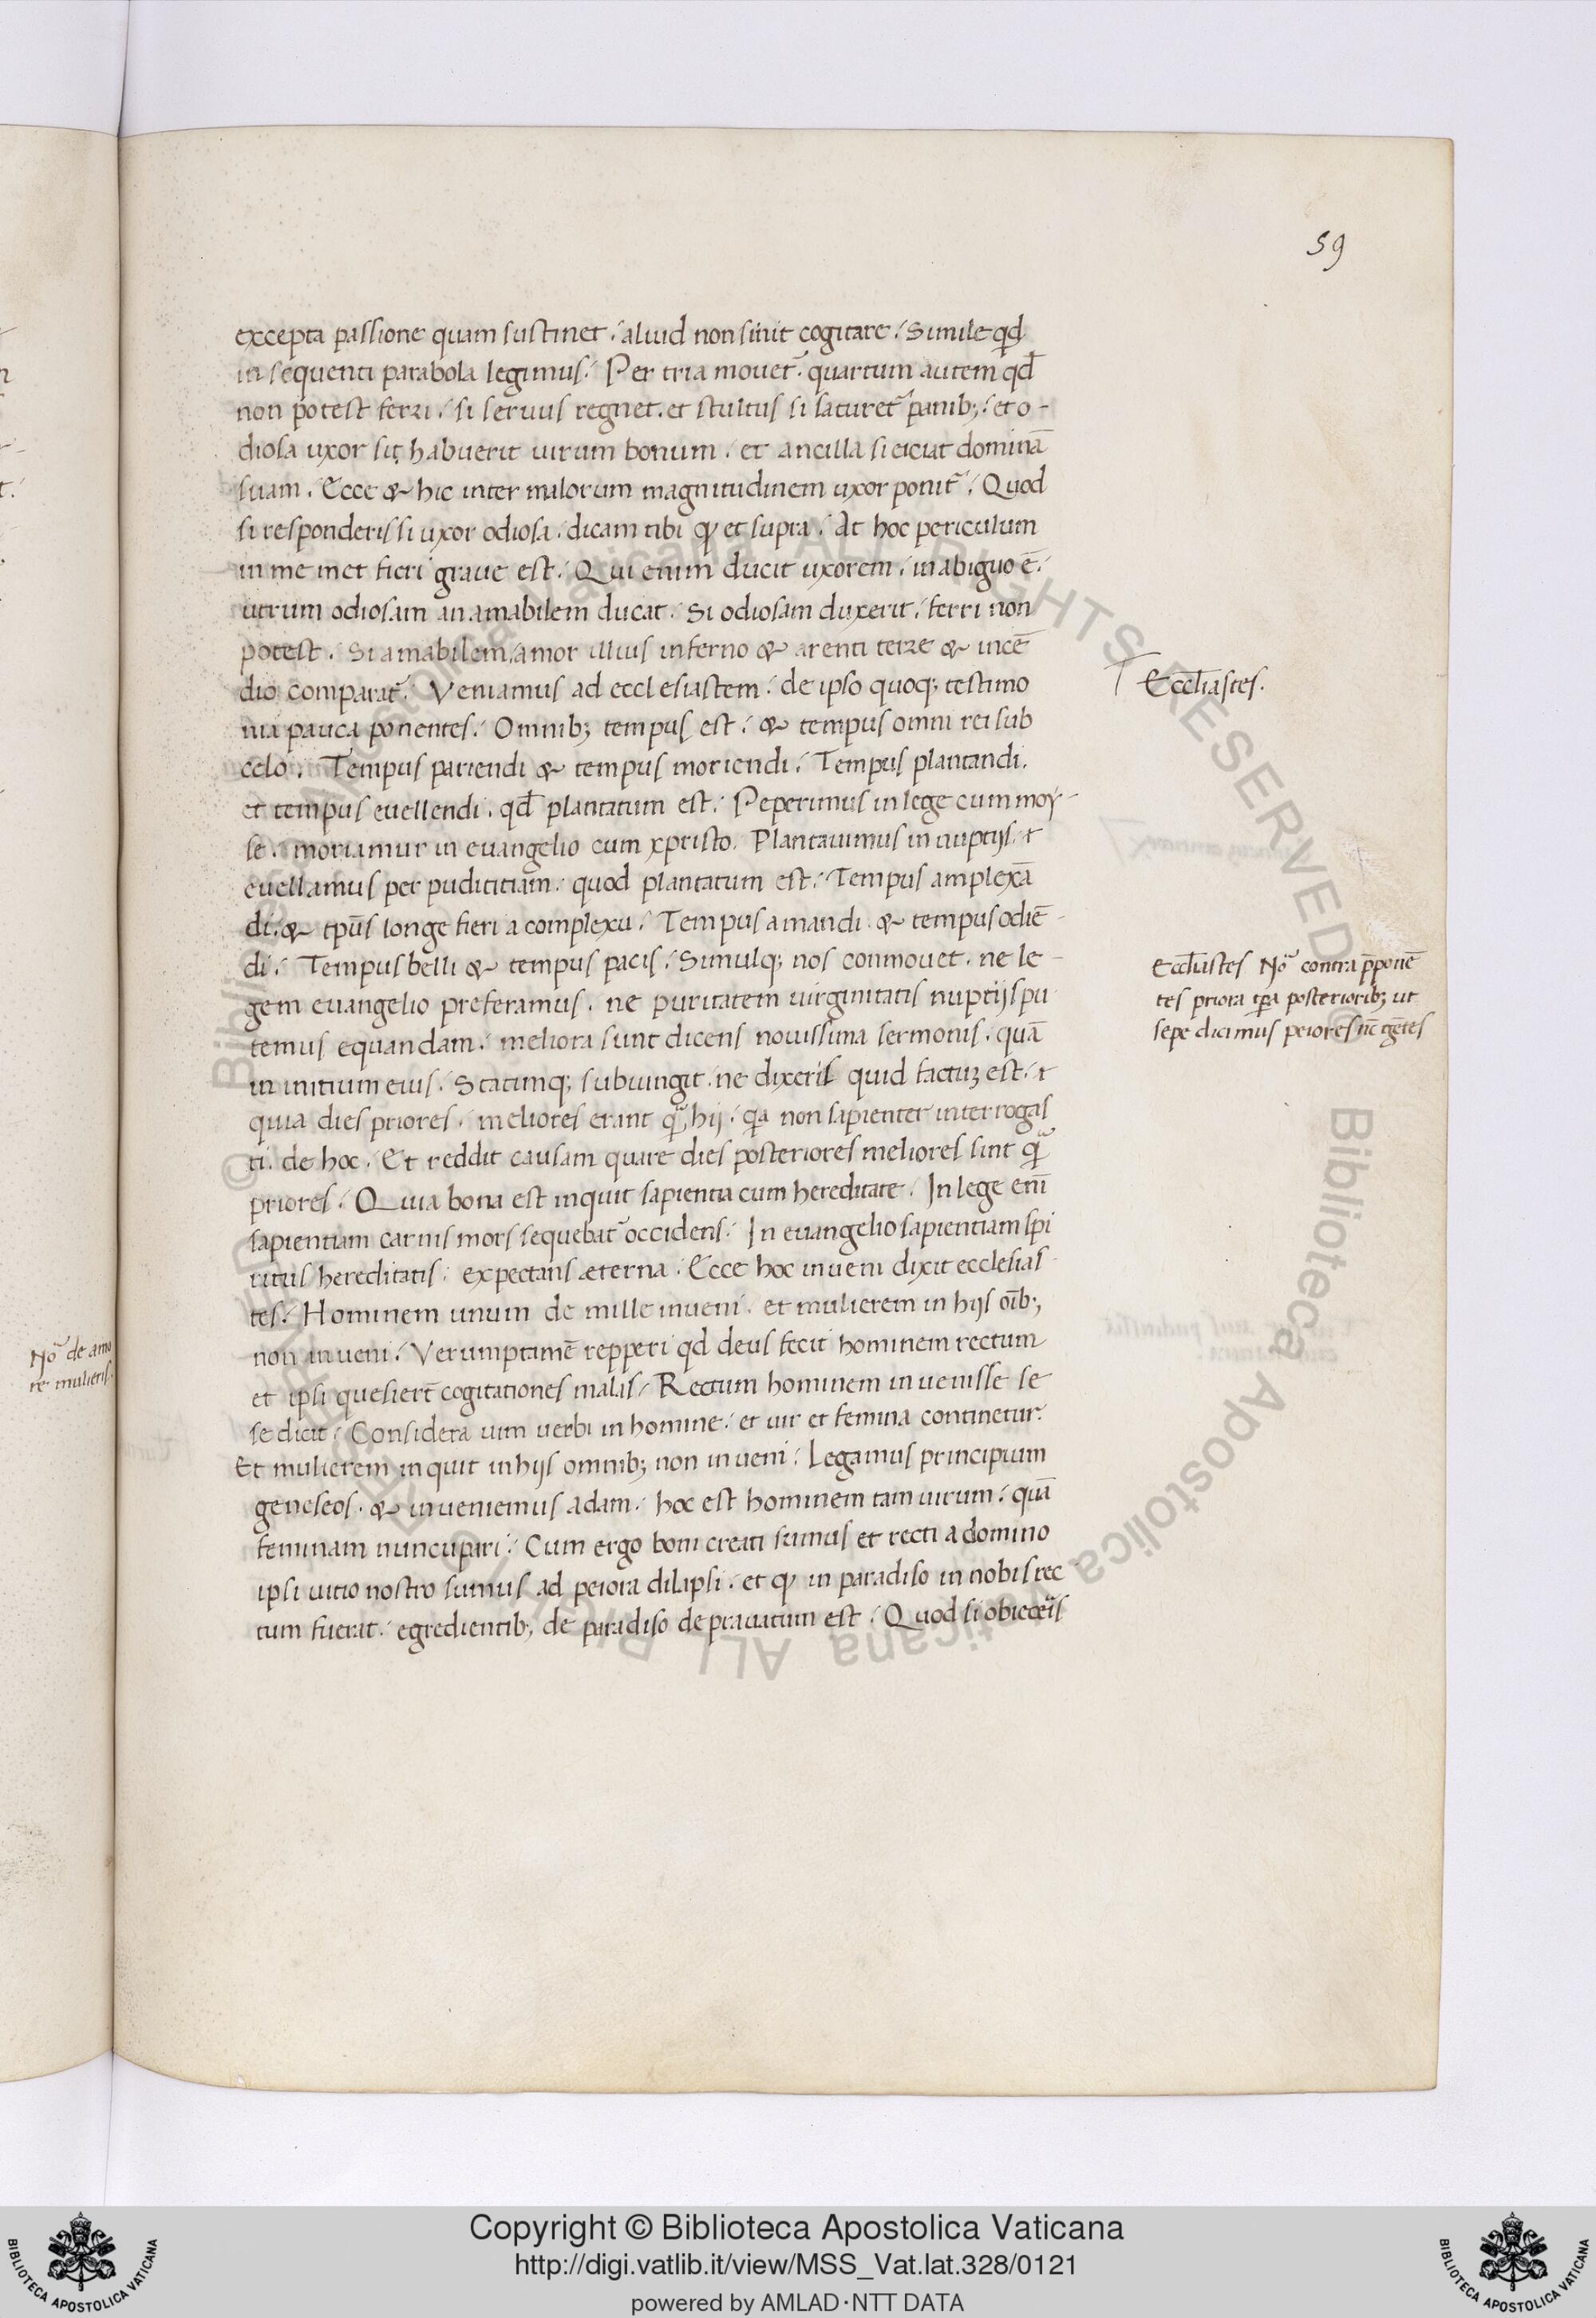 59
excepta passione quam sustinet. aliud non sinit cogitare. Simile qd̄
in sequenti parabola legimus. Per tria mouet᷑. quartum autem qd̄
non potest ferri. si seruus regnet. et stultus si saturet᷑ panib;. et o-
diosa uxor si habuerit uirum bonum. et ancilla si eiciat dominā
suam. Ecce & hic inter malorum magnitudinem uxor ponit᷑. Quod
si responderis si uxor odiosa. dicam tibi ꝙ et supra. At hoc periculum
in me met fieri graue est. Qui enim ducit uxorem. in abiguo ē.
utrum odiosam an amabilem ducat. Si odiosam duxerit. ferri non
potest. Si amabilem. amor illius inferno & arenti terre & incē
dio comparat᷑. Veniamus ad ecclesiastem. de ipso quoq; testimo
nia pauca ponentes. Omnib; tempus est. & tempus omni rei sub
celo. Tempus pariendi & tempus moriendi. Tempus plantandi.
et tempus euellendi. qd̄ plantatum est. Peperimus in lege cum moy-
se. moriamur in euangelio cum xpristo. Plantauimus in nuptijs. &
euellamus per pudicitiam. quod plantatum est. Tempus amplexā
di. & tp̄us longe fieri a complexu. Tempus amandi & tempus odiē-
di. Tempus belli & tempus pacis. Simulq; nos conmouet. ne le-
gem euangelio preferamus. ne puritatem uirginitatis nuptijs pu
temus equandam. meliora sunt dicens nouissima sermonis. quā
in initium eius. Statimq; subiungit. ne dixeris quid factuʒ est. &
quia dies priores. meliores erant qᷓ hij. qa non sapienter interrogas
ti de hoc. Et reddit causam quare dies posteriores meliores sint qᷓ
priores. Quia bona est inquit sapientia cum hereditate. In lege enī
sapientiam carnis mors sequebat᷑ occidens. In euangelio sapientiam spi
ritus hereditatis. expectans æterna. Ecce hoc inueni dixit ecclesias-
tes. Hominem unum de mille inueni. et mulierem in hijs oīb;
non inueni. Verumptamē repperi qd deus fecit hominem rectum
et ipsi quesiert̄ cogitationes malas. Rectum hominem inuenisse se
se dicit. Considera uim uerbi in homine. et uir et femina continetur.
Et mulierem inquit in hijs omnib; non inueni. Legamus principium
geneseos. & inueniemus adam. hoc est hominem tam uirum. quā
feminam nuncupari. Cum ergo boni creati sumus et recti a domino
ipsi uitio nostro sumus ad peiora dilapsi. et ꝙ in paradiso in nobis rec
tum fuerat. egredientib; de paradiso deprauatum est. Quod si obiecēis
Eccl̄iastes.
Eccl̄iastes Noᷓ contra p̄ponē
tes priora tpa posteriorib; ut
sepe dicimus peiores nc̄ gētes
Noᷓ de amo
re mulieris.
Copyright © Biblioteca Apostolica Vaticana
http://digi.vatlib.it/view/MSS_Vat.lat.328/0121
powered by AMLAD·NTT DATA
BIBLIOTECA APOSTOLICA VATICANA
BIBLIOTECA APOSTOLICA VATICANA